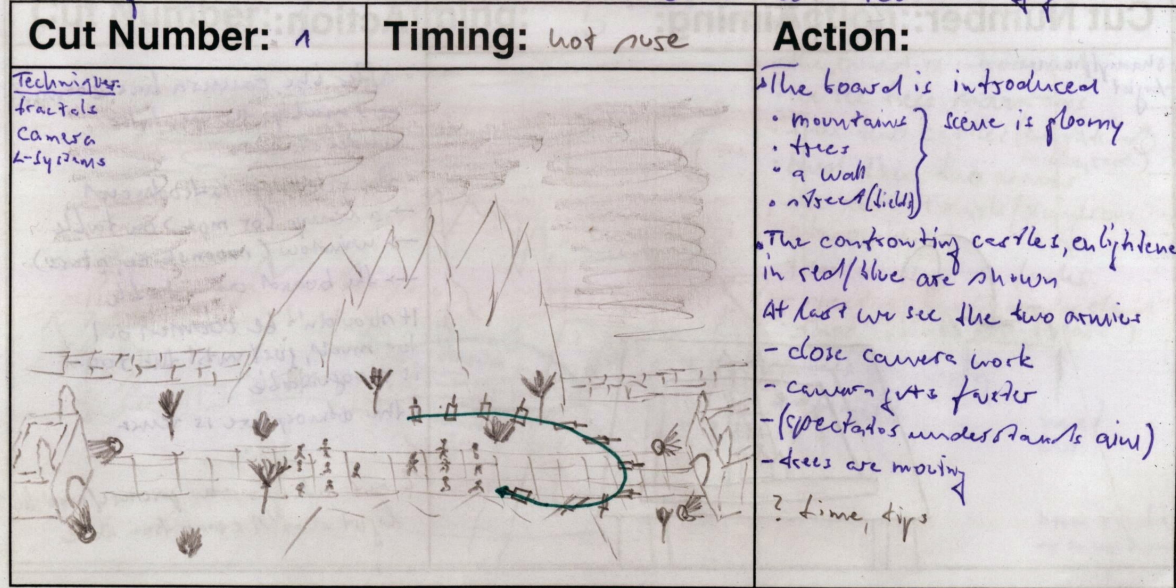 Cut Number: 1
Timing: not sure
Action:
Techniques
fractals
Camera
L-Systems
The board is introduced
• mountains } scene is gloomy
• trees
• a wall
• street (fields)
• The confronting castles, enlightene
in red/blue are shown
At last we see the two armies
- close camera work
- camera gets faster
- (spectator understands aim)
- trees are moving
? time, tips